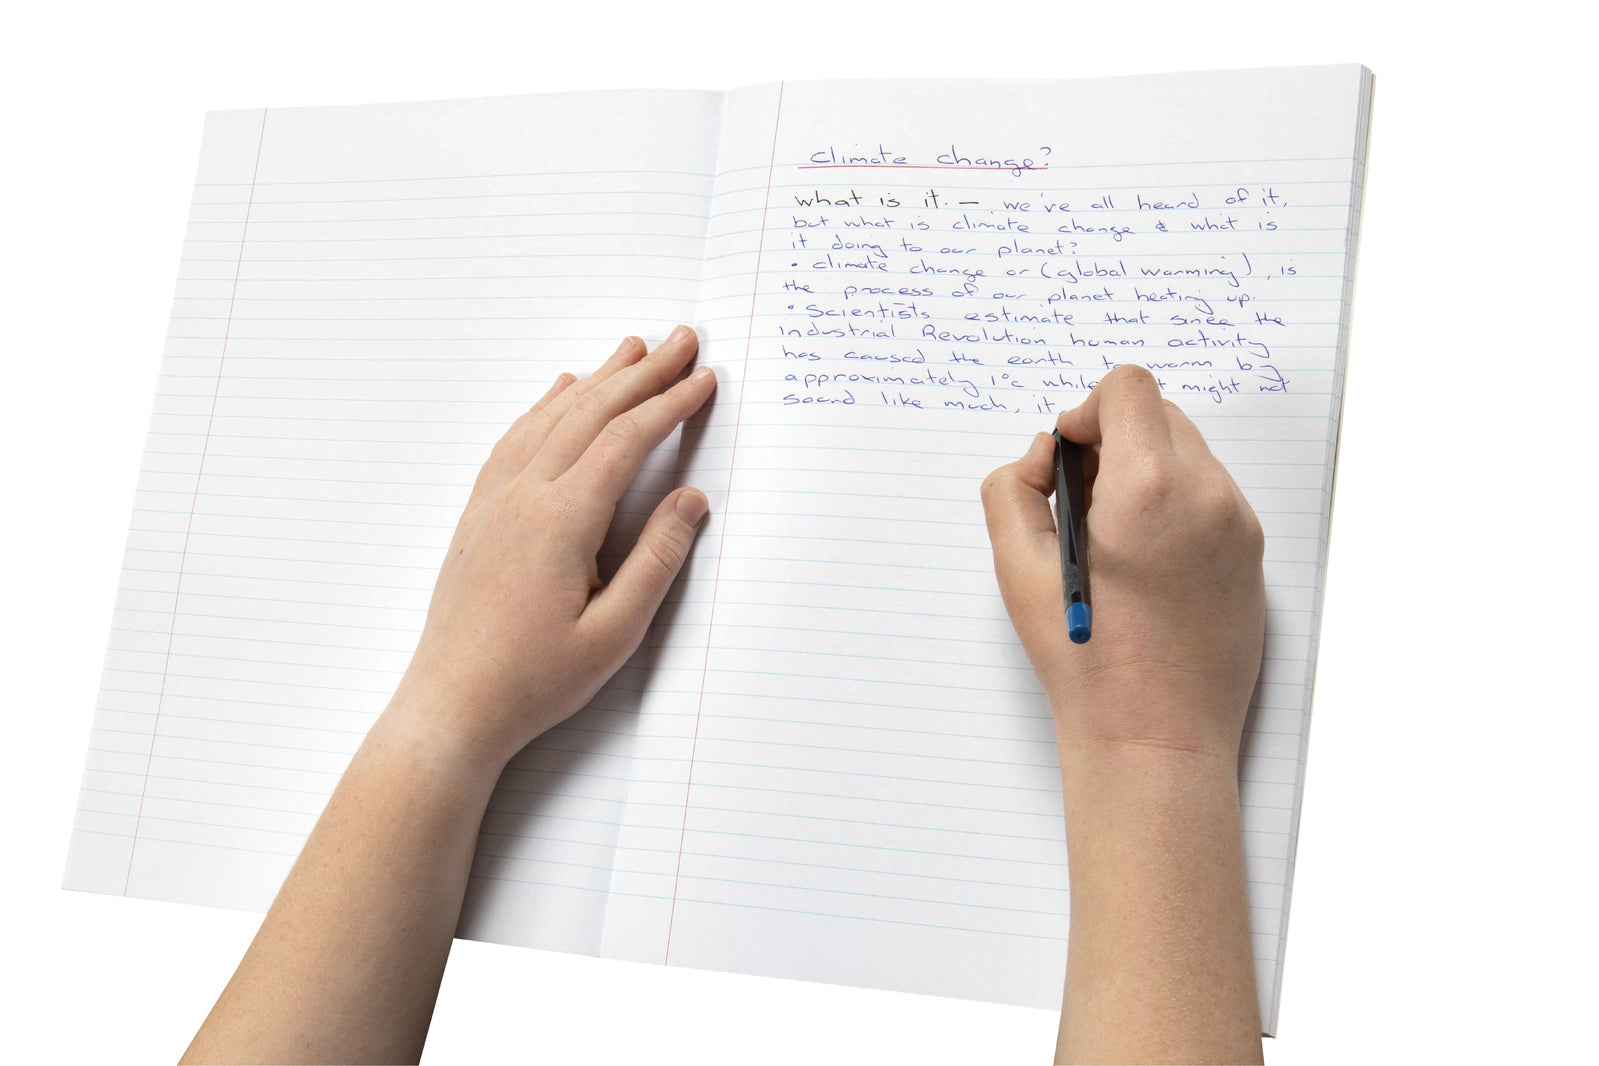 Climate change?
what is it. — we've all heard of it,
but what is climate change & what is
it doing to our planet?
• climate change or (global warming), is
the process of our planet heating up.
• Scientists estimate that since the
industrial Revolution human activity
has caused the earth to warm by
approximately 1°c while might not
sound like much, it